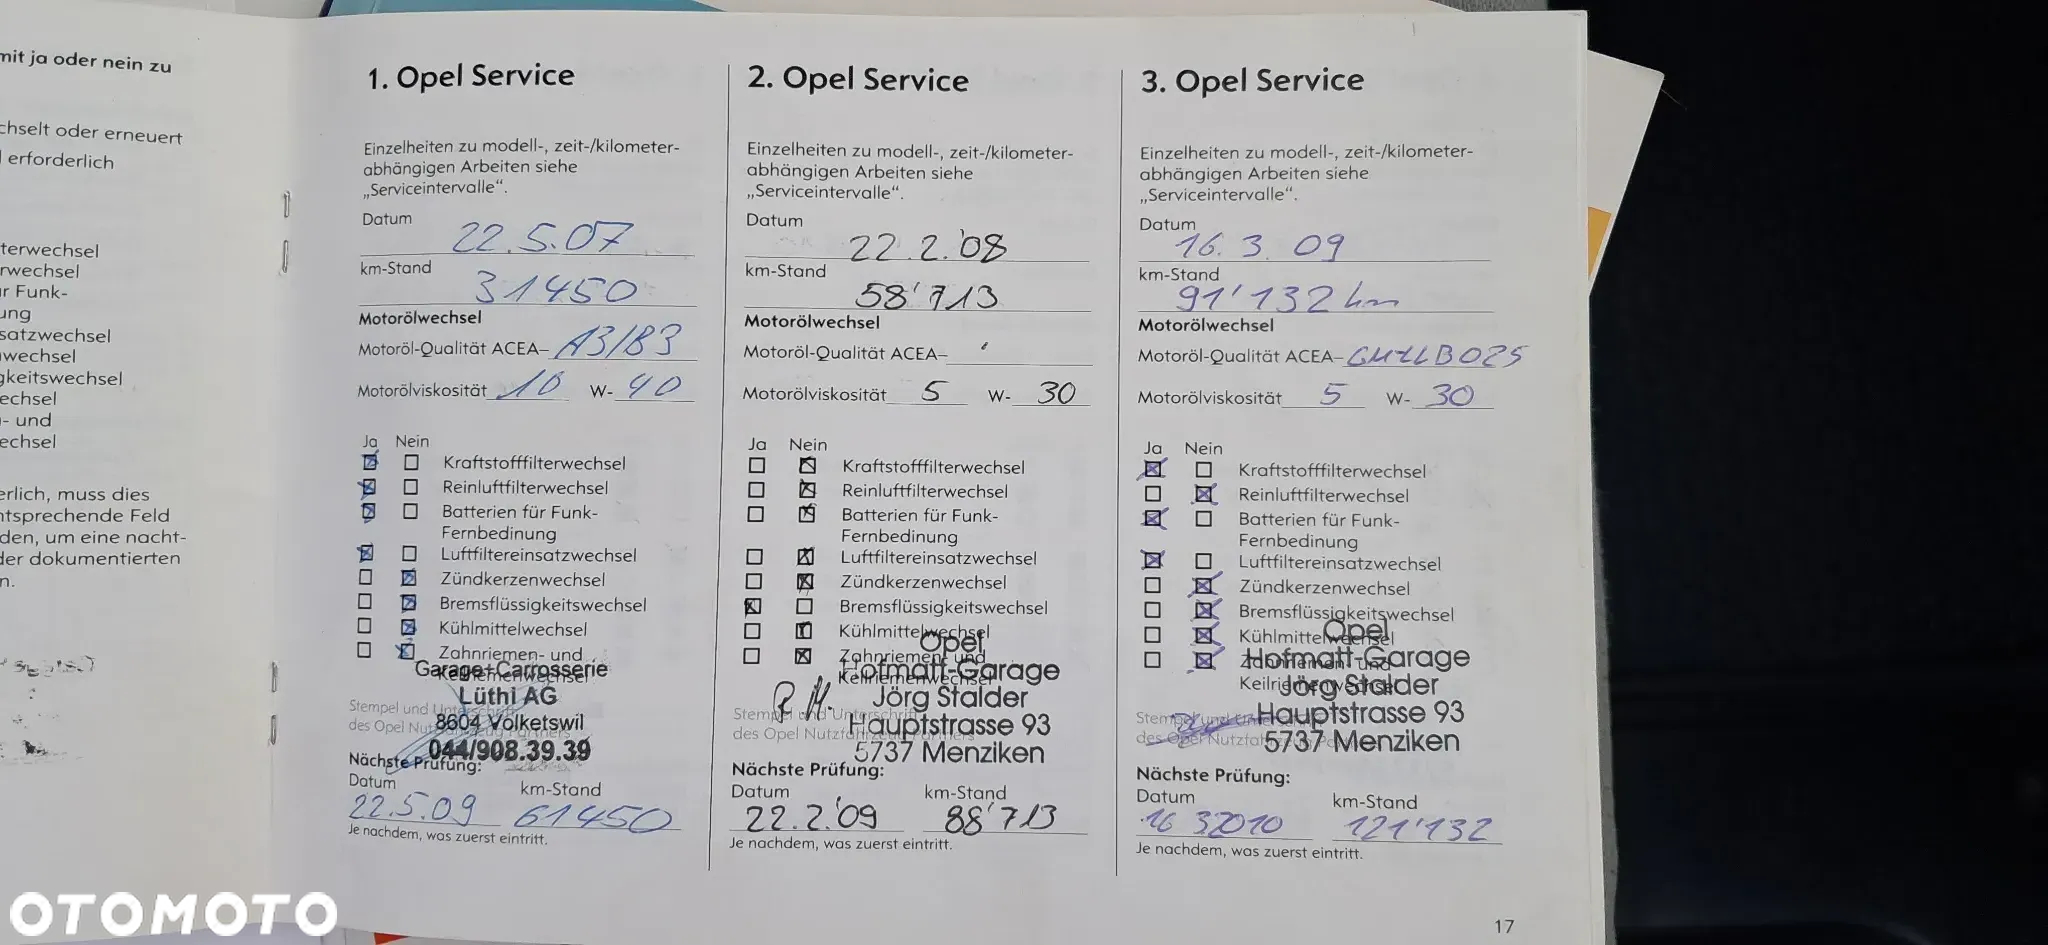 mit ja oder nein zu
chselt oder erneuert
erforderlich
terwechsel
rwechsel
r Funk-
ung
satzwechsel
wechsel
gkeitswechsel
echsel
- und
echsel
erlich, muss dies
ntsprechende Feld
den, um eine nacht-
der dokumentierten
n.
1. Opel Service
Einzelheiten zu modell-, zeit-/kilometer-
abhängigen Arbeiten siehe
„Serviceintervalle“.
Datum
22.5.07
km-Stand
31450
Motorölwechsel
Motoröl-Qualität ACEA- A3/B3
Motorölviskosität 10 W- 40
Ja Nein
Kraftstofffilterwechsel
Reinluftfilterwechsel
Batterien für Funk-
Fernbedinung
Luftfiltereinsatzwechsel
Zündkerzenwechsel
Bremsflüssigkeitswechsel
Kühlmittelwechsel
Zahnriemen- und
Keilriemenwechsel
Garage+Carrosserie
Lüthi AG
8604 Volketswil
044/908.39.39
Stempel und Unterschrift
des Opel Nutzfahrzeug Partners
Nächste Prüfung:
Datum km-Stand
22.5.09 61450
Je nachdem, was zuerst eintritt.
2. Opel Service
Einzelheiten zu modell-, zeit-/kilometer-
abhängigen Arbeiten siehe
„Serviceintervalle“.
Datum
22.2.'08
km-Stand
58'713
Motorölwechsel
Motoröl-Qualität ACEA-
Motorölviskosität 5 W- 30
Ja Nein
Kraftstofffilterwechsel
Reinluftfilterwechsel
Batterien für Funk-
Fernbedinung
Luftfiltereinsatzwechsel
Zündkerzenwechsel
Bremsflüssigkeitswechsel
Kühlmittelwechsel
Zahnriemen- und
Keilriemenwechsel
Opel
Hofmatt-Garage
Jörg Stalder
Hauptstrasse 93
5737 Menziken
Stempel und Unterschrift
des Opel Nutzfahrzeug Partners
Nächste Prüfung:
Datum km-Stand
22.2.'09 88'713
Je nachdem, was zuerst eintritt.
3. Opel Service
Einzelheiten zu modell-, zeit-/kilometer-
abhängigen Arbeiten siehe
„Serviceintervalle“.
Datum
16.3.09
km-Stand
91'132 km
Motorölwechsel
Motoröl-Qualität ACEA-
Motorölviskosität 5 W- 30
Ja Nein
Kraftstofffilterwechsel
Reinluftfilterwechsel
Batterien für Funk-
Fernbedinung
Luftfiltereinsatzwechsel
Zündkerzenwechsel
Bremsflüssigkeitswechsel
Kühlmittelwechsel
Zahnriemen- und
Keilriemenwechsel
Opel
Hofmatt-Garage
Jörg Stalder
Hauptstrasse 93
5737 Menziken
Stempel und Unterschrift
des Opel Nutzfahrzeug Partners
Nächste Prüfung:
Datum km-Stand
16 3 2010 121'132
Je nachdem, was zuerst eintritt.
17
OTOMOTO